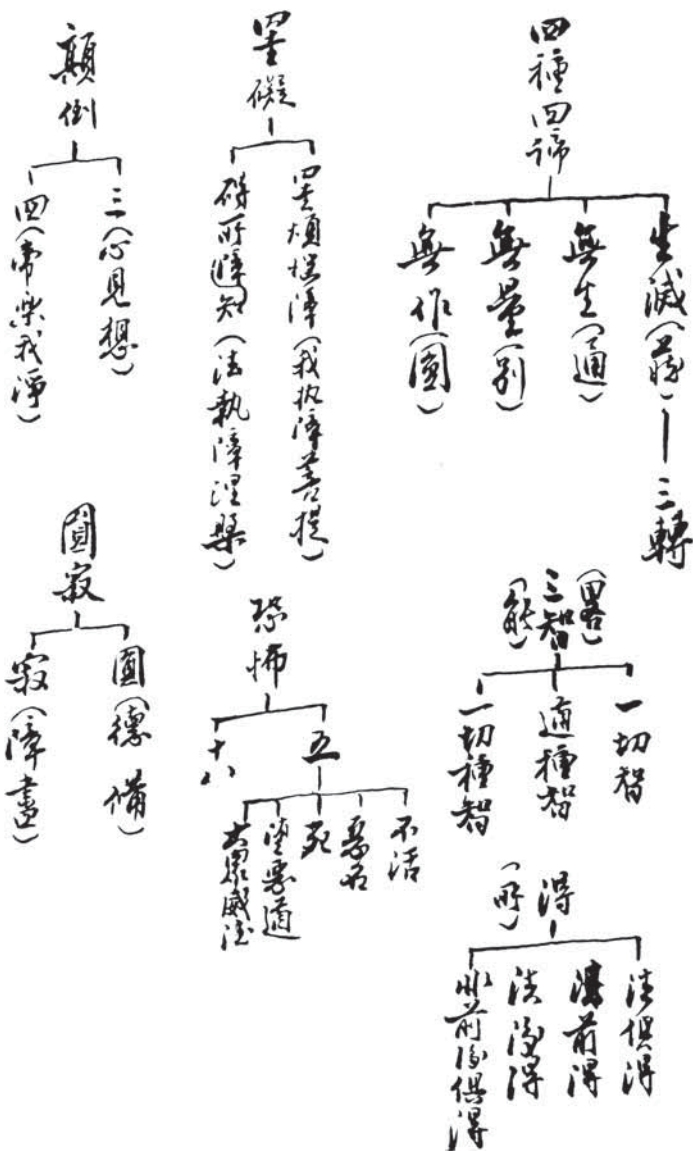 四種四諦
生滅(藏)—三轉
無生(通)
無量(別)
無作(圓)
(略)
三智
(能)
一切智
道種智
一切種智
得
(所)
法俱得
法前得
法後得
非前後俱得
罣礙
罣煩惱障(我執障菩提)
礙所障知(法執障涅槃)
恐怖
五
不活
惡名
死
墮惡道
大眾威德
十八
顛倒
三(心見想)
四(常樂我淨)
圓寂
圓(德備)
寂(障盡)